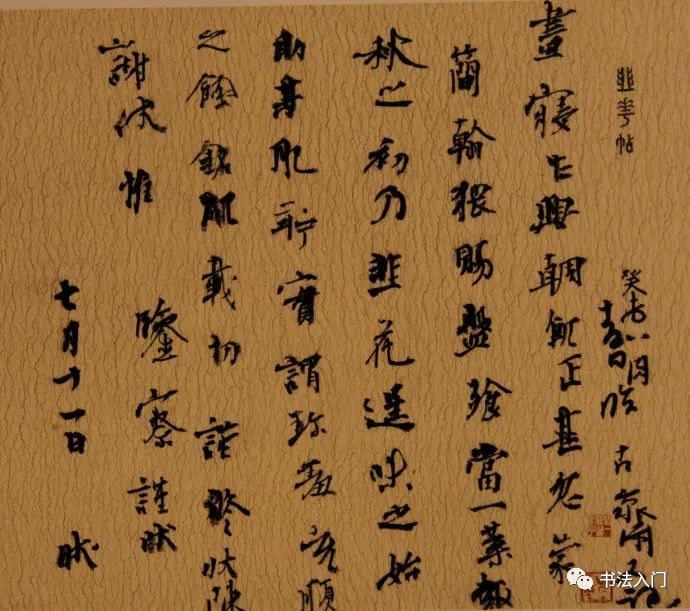 韭華帖
晝寢乍興朝飢正甚忽蒙
簡翰猥賜盤飧當一葉報
秋之初乃韭花逞味之始
助其肥羜實謂珍羞充腹
之餘銘肌載切 謹修狀陳
謝伏惟 鑒察謹狀
七月十一日 狀
书法入门